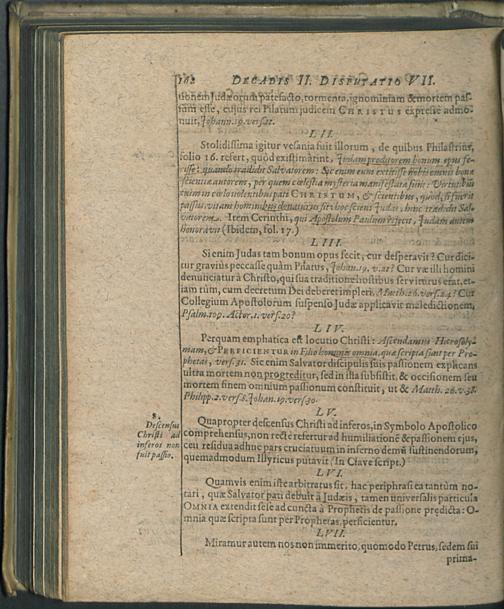 162 DECADIS II. DISPUTATIO VII.
tionem Judæorum patefacto, tormenta, ignominiam & mortem pas-
sum esse, cujus rei Pilatum judicem CHRISTUS expresse admo-
nuit, Johann. 19. vers. 11.
LII.
Stolidissima igitur vesania fuit illorum, de quibus Philastrius,
folio 16. refert, quòd existimârint, Judam proditorem bonum opus fe-
cisse, quando tradidit Salvatorem: Sic enim eum extitisse nobis omnis bonæ
scientiæ autorem, per quem cœlestia mysteria manifestata sunt: Virtutibus
enim in cœlo nolentibus pati CHRISTUM, & scientibus, quòd, si fuerit
passus, vitam hominibus donaturus sit: hoc sciens Judas, hinc tradidit Sal-
vatorem. Item Cerinthi, qui Apostolum Paulum rejecit, Judam autem
honoravit (Ibidem, fol. 17.)
LIII.
Si enim Judas tam bonum opus fecit, cur desperavit? Cur dici-
tur gravius peccasse quàm Pilatus, Johan. 19. v. 11? Cur væ illi homini
denunciatur à Christo, qui sua traditione hostibus serviturus erat, et-
iam tùm, cum decretum Dei deberet impleri, Matth. 26. vers. 24? Cur
Collegium Apostolorum suspenso Judæ applicavit maledictionem,
Psalm. 109. Actor. 1. vers. 20?
LIV.
Perquam emphatica est locutio Christi: Ascendamus Hierosoly-
mam, & PERFICIENTUR in Filio hominis omnia, quæ scripta sunt per Pro-
phetas, vers. 31. Sic enim Salvator discipulis suis passionem explicans
ultra mortem non progreditur, sed in illa subsistit, & occisionem seu
mortem finem omnium passionum constituit, ut & Matth. 26. v. 38.
Philipp. 2. vers. 8. Johan. 19. vers. 30.
LV.
8.
Descensus
Christi ad
inferos non
fuit passio.
Quapropter descensus Christi ad inferos, in Symbolo Apostolico
comprehensus, non rectè refertur ad humiliationē & passionem ejus,
ceu residua adhuc pars cruciatuum in inferno demū sustinendorum,
quemadmodum Illyricus putavit (In Clave script.)
LVI.
Quamvis enim iste arbitratus sit, hac periphrasi ea tantùm no-
tari, quæ Salvator pati debuit à Judæis, tamen universalis particula
OMNIA extendit sese ad cuncta à Prophetis de passione prędicta: O-
mnia quæ scripta sunt per Prophetas, perficientur.
LVII.
Miramur autem nos non immerito, quomodo Petrus, sedem sui
prima-